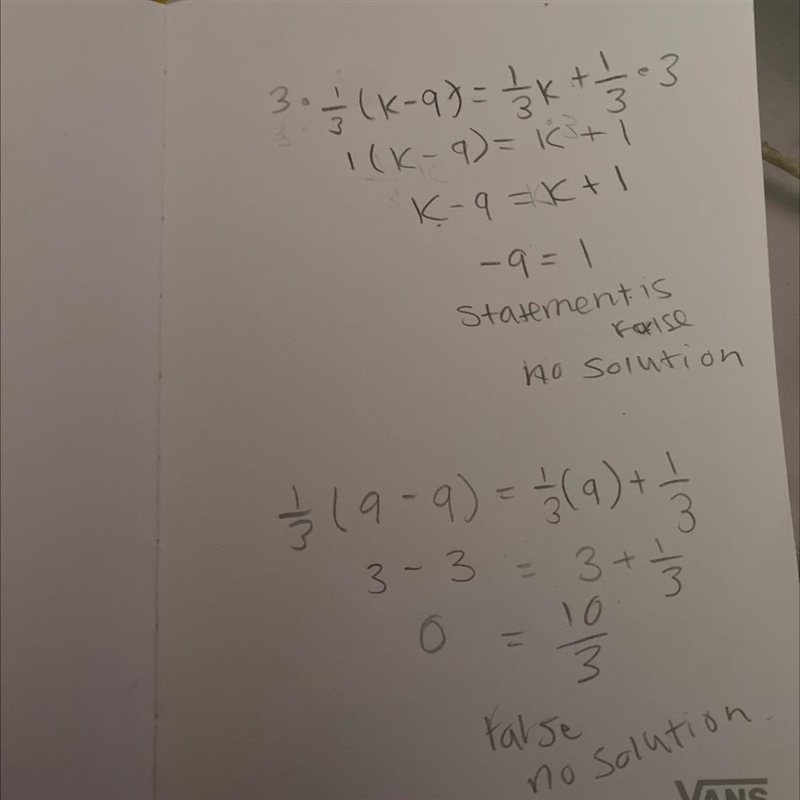 3 · 1/3 (k-9) = 1/3 k + 1/3 · 3
1(k-9) = k + 1
k-9 = k + 1
-9 = 1
Statement is
false
no solution
1/3 (9-9) = 1/3 (9) + 1/3
3-3 = 3 + 1/3
0 = 10/3
false
no solution
VANS